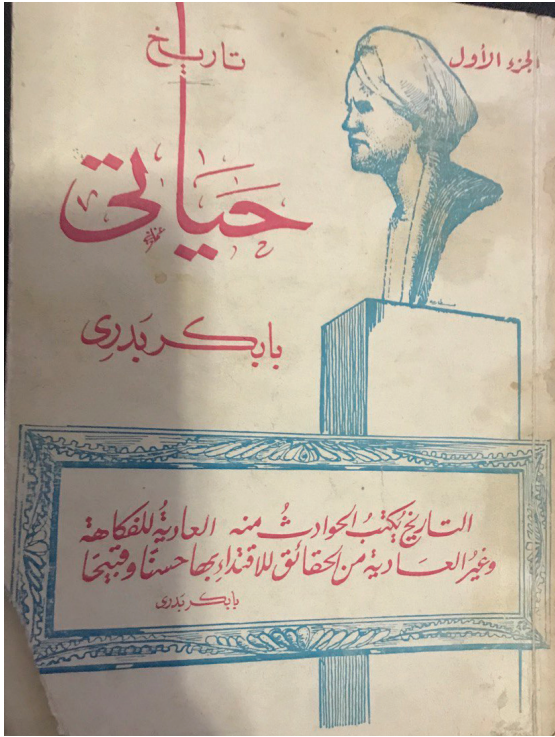 الجزء الأول
تاريخ
حياتى
بابكر بدرى
التاريخ يكتبُ الحوادثُ منه العاديةُ للفكاهة
وغيرُ العادية من الحقائق للاقتداءِ بها حسنًا وقبيحًا
بابكر بدرى